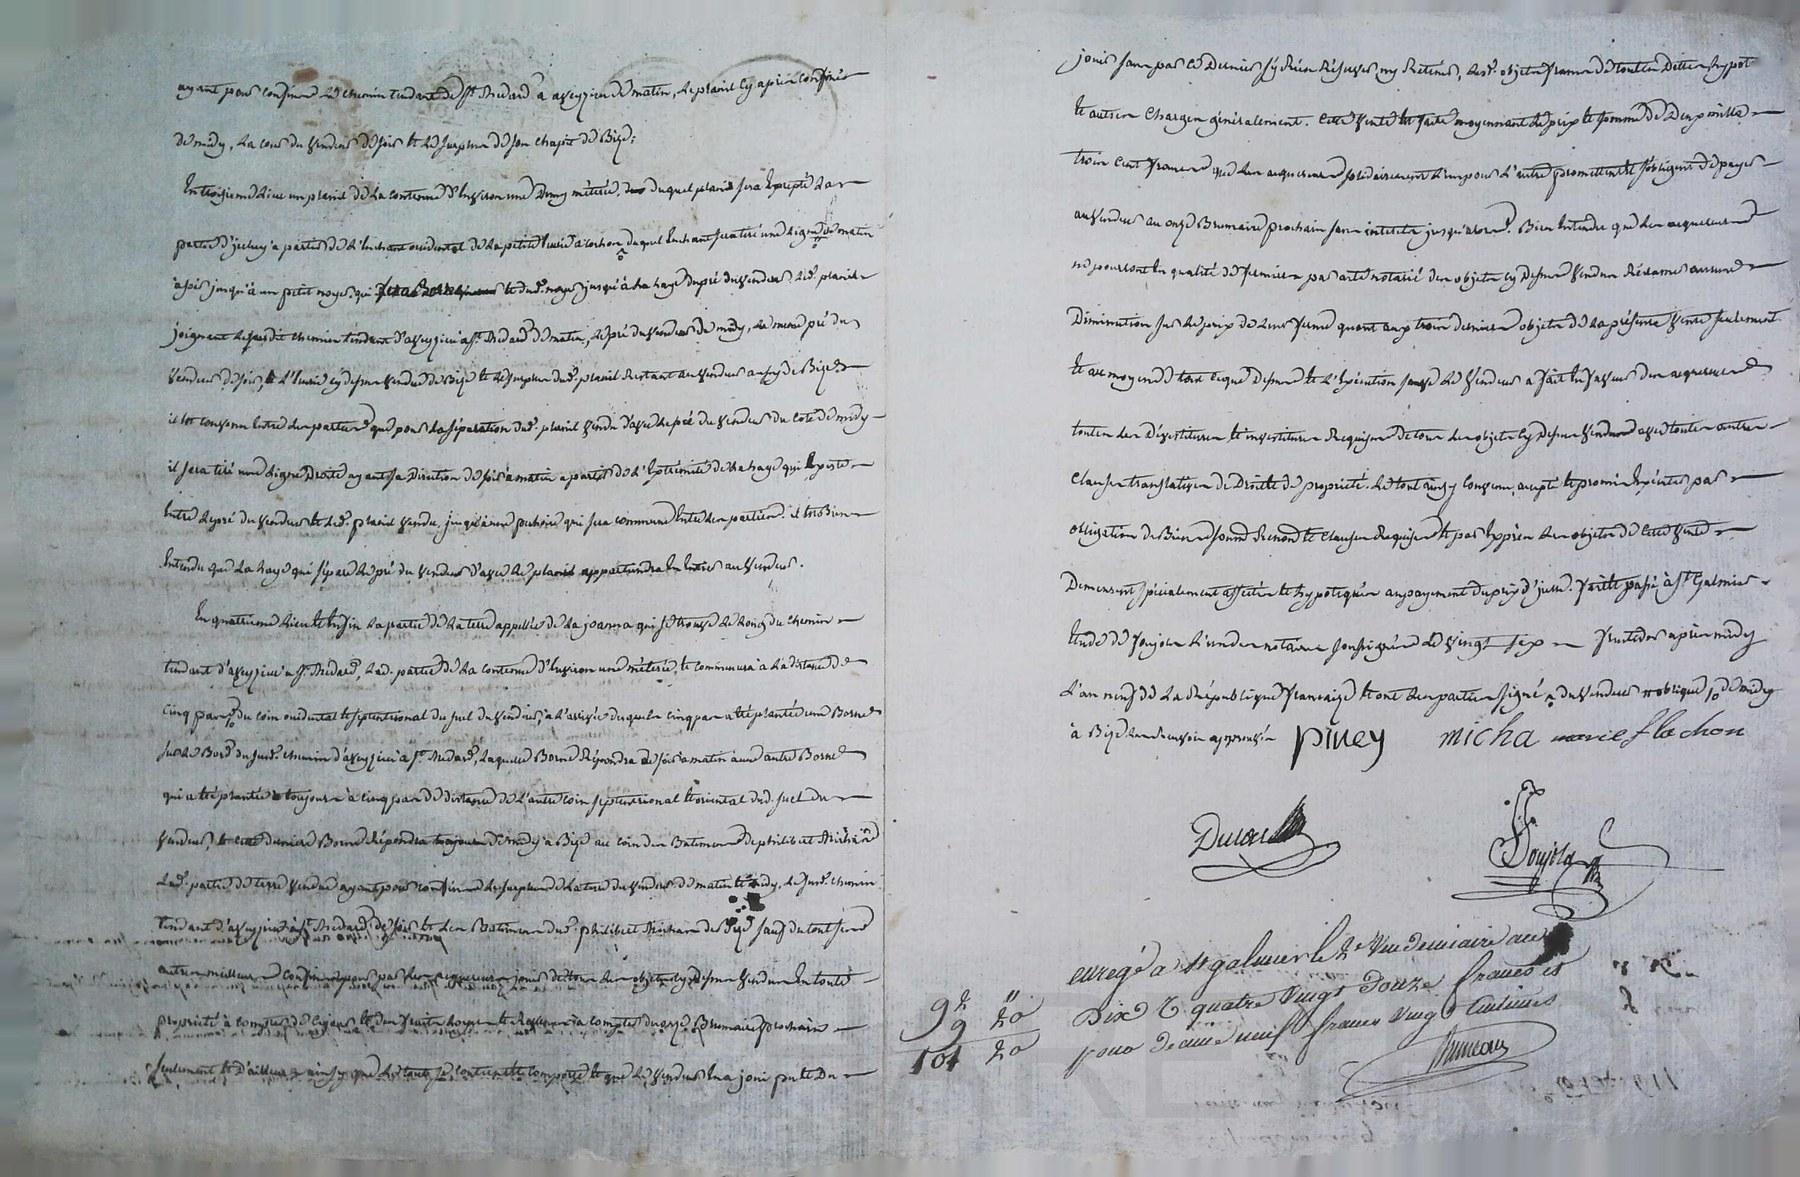 ayant pour confins le chemin tendant de St Medard a aveyzieu de matin, le plassil cy après confiné
de midy, la cour du vendeur de soir et le surplus de son chapit de Bize;
En troisieme lieu un plassil de la contenue d'environ une demy métérée, duquel plassil sera excepté la
partie d'jceluy a partir de l'enchant occidental de la petite écurie a cochon duquel enchant sera tiré une ligne de matin
a soir jusqu'à un petit noyer, qui et dud. noyer jusqu'à la haye du pré du vendeur led. plassil
joignant le susdit chemin tendant d'aveyzieu a St Medard de matin, le pré du vendeur de midy, le meme pré du
vendeur de soir, et l'écurie cy dessus vendue de Bize et le surplus dud. plassil restant au vendeur aussy de Bize
il est convenu entre les parties que pour la séparation dud. plassil vendu d'avec le pré du vendeur du coté de midy
il sera tiré une ligne droite ayant sa direction de soir a matin a partir de l'extrémité de la haye qui existe
entre le pré du vendeur et led. plassil vendu, jusqu'à une qui sera commune entre les parties. il est Bien
Entendu que la haye qui sépare le pré du vendeur d'avec le plassil appartiendra en entier au vendeur.
En quatrieme lieu et enfin la partie de la terre appellée de la joanna qui se trouve le long du chemin
tendant d'aveyzieu a St Medard, lad. partie de la contenue d'environ une méterée, et commencera a la distance de
cinq pas du coin occidental et septentrional du suel du vendeur, a l'arrivée desquels cinq pas a été plantée une Borne
sur le Bord du susd. chemin d'aveyzieu a St Medard, laquelle Borne répondra de soir a matin a une autre Borne
qui a été plantée toujours a cinq pas de distance de l'autre coin septentrional et oriental dud. suel du
vendeur, et cette derniere Borne répondra toujours de midy a Bize au coin des Batimens de philibert
lad. partie de terre vendue ayant pour confins le surplus de la terre du vendeur de matin et midy, le susd. chemin
tendant d'aveyzieu a St Medard de soir et les Batimens dud. philibert de Bize sauf du tout ses
autres meilleurs confins pour par les acquereurs jouir de tous les objets cy dessus vendus en toute
propriété a compter de ce jour et des fruits a compter du onze Brumaire prochain
seulement et d'ailleurs ainsy que le tout se contient et comporte et que le vendeur en a joui pu et du
jouir sans par ce dernier s'y rien réserver, ny retenir, lesd. objets francs de toutes Dettes Impot
et autres charges généralement. cette vente est faite moyennant le prix et somme de Deux mille
trois cent francs que les acquereurs solidairement l'un pour l'autre promettent et s'obligent de payer
au vendeur au onze Brumaire prochain sans interets jusqu'alors. Bien Entendu que les acquereurs
ne pourront en qualité de fermiers par acte notarié des objets cy dessus vendus réclamer aucune
Diminution sur le prix de leur ferme quant aux trois derniers objets de la présente vente seulement
et au moyen de tout ce que dessus et l'exécution sauve le vendeur a fait en faveur des acquereurs
toutes les Dévestitures et investitures requises de tous les objets cy dessus vendus avec toutes autres
Clauses translatives de Droits de propriété. le tout ainsy convenu, accepté et promis executer par
obligation de Biens soumis renoncé et clauses requises et par exprès les objets de cette vente
Demeurent spécialement affectés et hypotequés au payement du prix d'jcelle. fait et passé à St Galmier
Etude de Poujola l'un des notaires soussignés le vingt six fructidor après midy
l'an neuf de la République française et ont les parties signé du vendeur oblique de midy
à Bize approuvés piney micha marie flachon
Poujola
enregé a St galmier le 2e Vendemiaire an
Dix R quatre Vingt Douze francs et
pour deime neuf francs Vingt Centimes
92 " 20
9 20
101 20